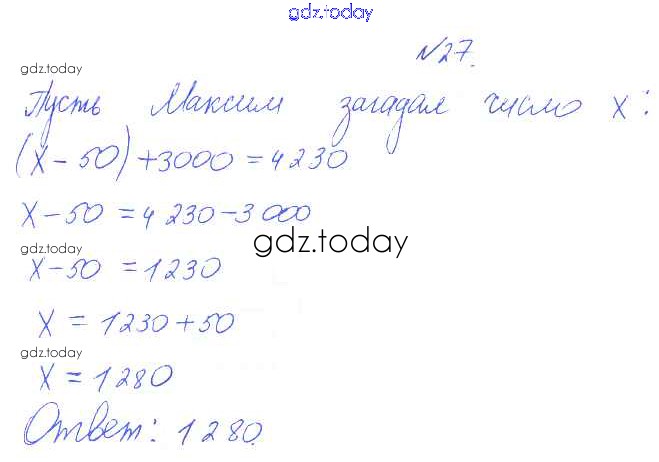 gdz.today
№27.
gdz.today
Пусть Максим загадал число x:
(x-50)+3000=4230
x-50=4230-3000
gdz.today
gdz.today
x-50=1230
x=1230+50
gdz.today
x=1280
Ответ: 1280.